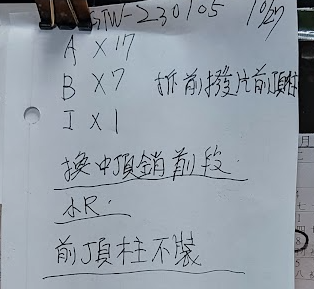 STW-230105 10/27
A X 17
B X 7 拆前撥片前頂柱
I X 1
換中頂銷前段.
小R.
前頂柱不裝
月